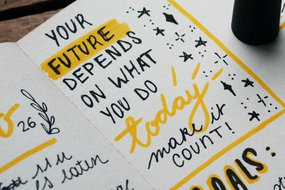 YOUR
FUTURE
DEPENDS
ON WHAT
YOU DO
today
make it
COUNT!